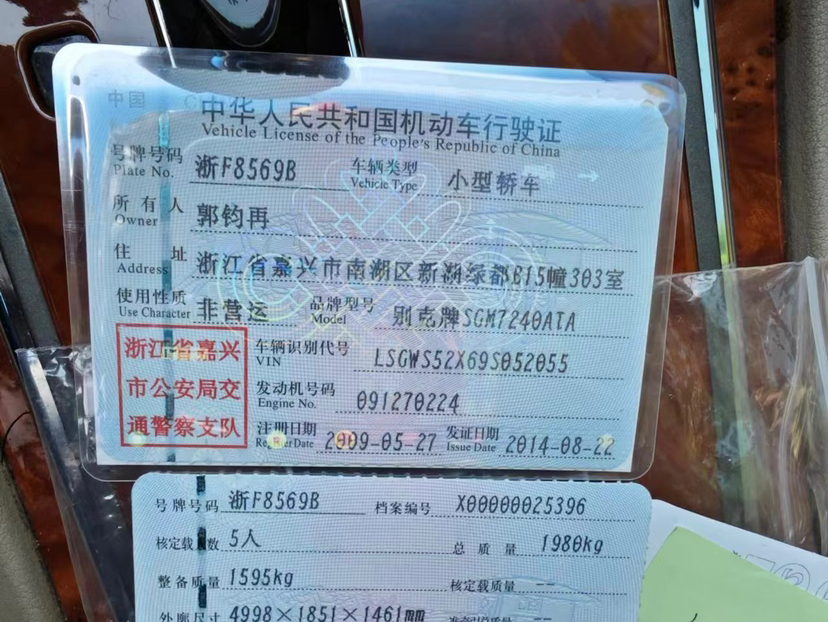 中国
中华人民共和国机动车行驶证
Vehicle License of the People's Republic of China
号牌号码 浙F8569B 车辆类型 小型轿车
Plate No. Vehicle Type
所有人 郭钧再
Owner
住址 浙江省嘉兴市南湖区新湖绿都B15幢303室
Address
使用性质 非营运 品牌型号 别克牌SGM7240ATA
Use Character Model
浙江省嘉兴
市公安局交
通警察支队
车辆识别代号 LSGWS52X69S052055
VIN
发动机号码 091270224
Engine No.
注册日期 2009-05-27 发证日期 2014-08-22
Register Date Issue Date
号牌号码 浙F8569B 档案编号 X00000025396
核定载人数 5人 总质量 1980kg
整备质量 1595kg 核定载质量 --
外廓尺寸 4998×1851×1461mm --